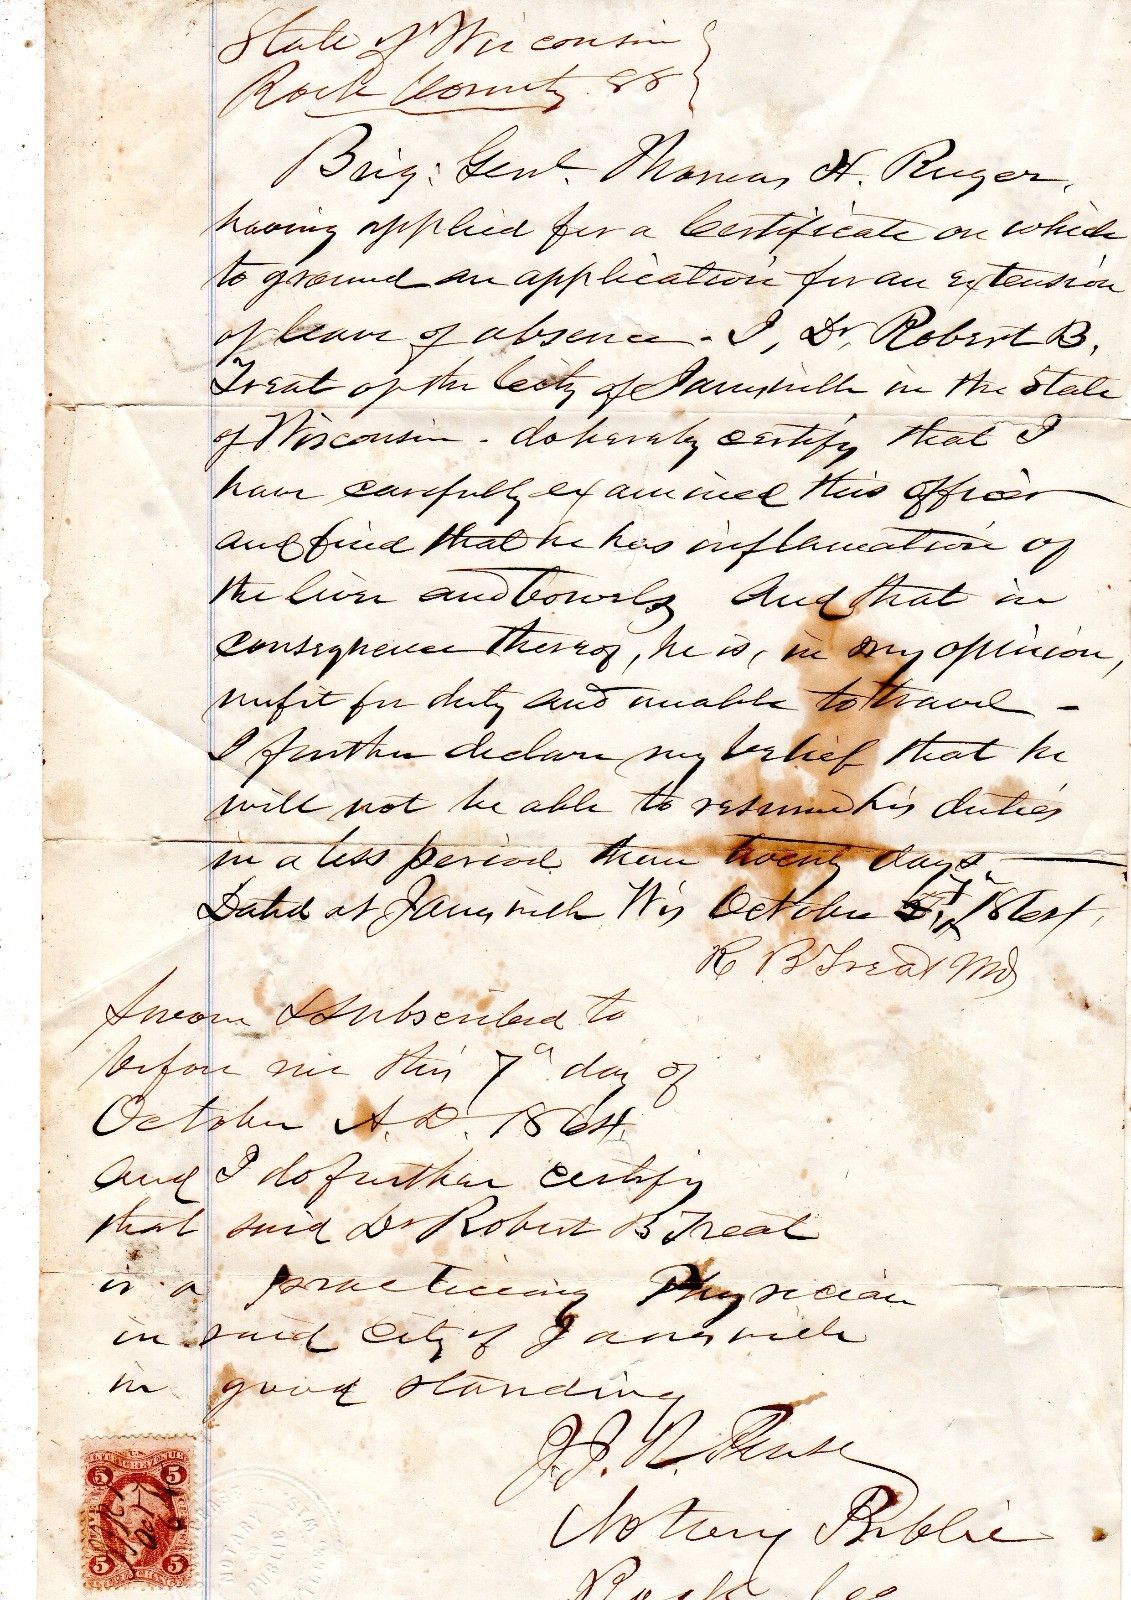 State of Wisconsin }
Rock County ss }
Brig: Genl. Thomas H. Ruger,
having applied for a Certificate on which
to ground an application for an extension
of leave of absence - I, Dr. Robert B.
Treat of the City of Janesville in the State
of Wisconsin - do hereby certify that I
have carefully examined this officer
and find that he has inflamation of
the liver and bowels and that in
consequence thereof, he is, in my opinion,
unfit for duty and unable to travel -
I further declare my belief that he
will not be able to resume his duties
in a less period than twenty days
Dated at Janesville Wis October 7" 1864.
R B Treat MD
Sworn & subscribed to
before me this 7" day of
October A.D. 1864.
and I do further certify
that said Dr Robert B Treat
is a practicing Physician
in said City of Janesville
in good standing
J. J. R. Pease
Notary Public
Rock Co
5 5
5 5
NOTARY PUBLIC